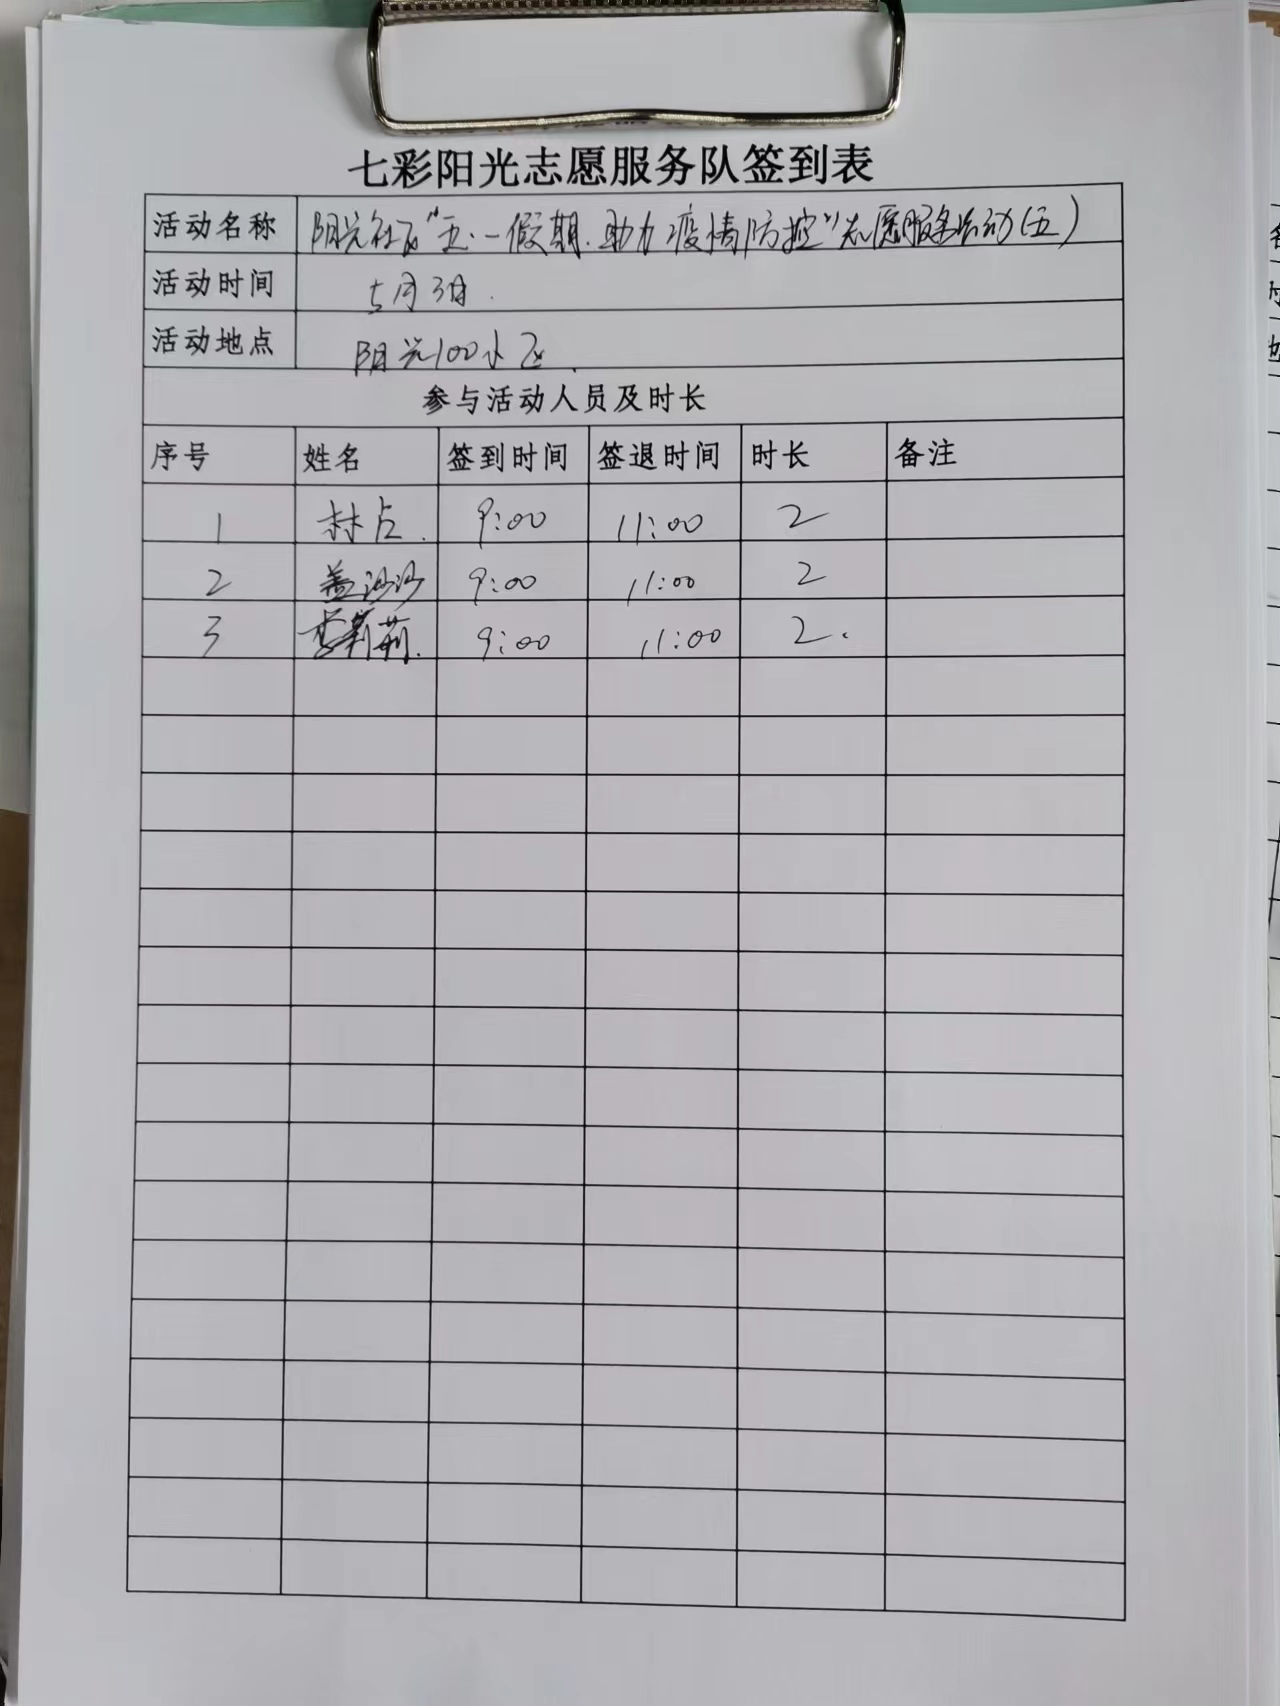 七彩阳光志愿服务队签到表
活动名称 阳光社区“五·一假期.助力疫情防控”志愿服务活动(五)
活动时间 5月3日.
活动地点 阳光100小区.
参与活动人员及时长
序号 姓名 签到时间 签退时间 时长 备注
1 林占. 9:00 11:00 2
2 盖沙沙 9:00 11:00 2
3 李莉莉. 9:00 11:00 2.